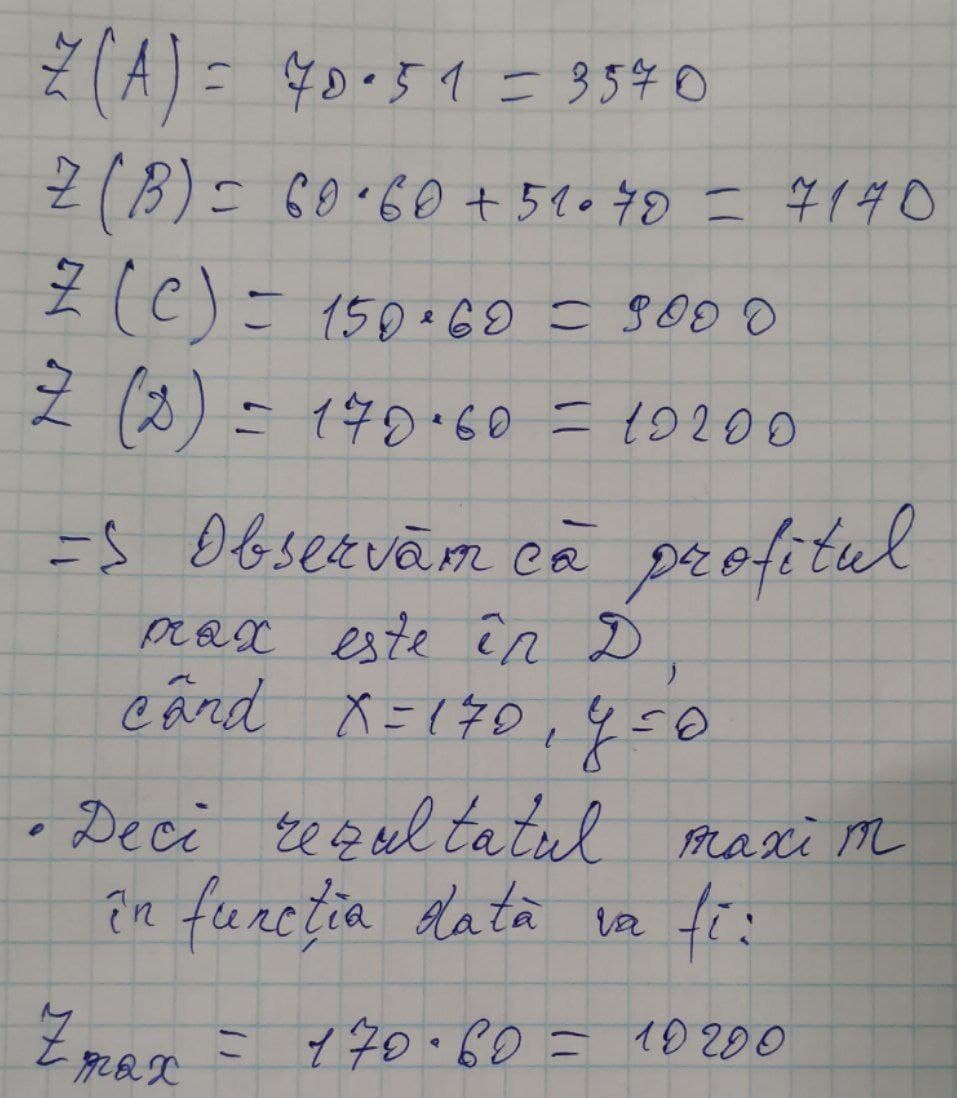 Z(A) = 70·51 = 3570
Z(B) = 60·60 + 51·70 = 7170
Z(C) = 150·60 = 9000
Z(D) = 170·60 = 10200
=> Observăm că profitul
max este în D,
când x=170, y=0
• Deci rezultatul maxim
în funcția dată va fi:
Zmax = 170·60 = 10200